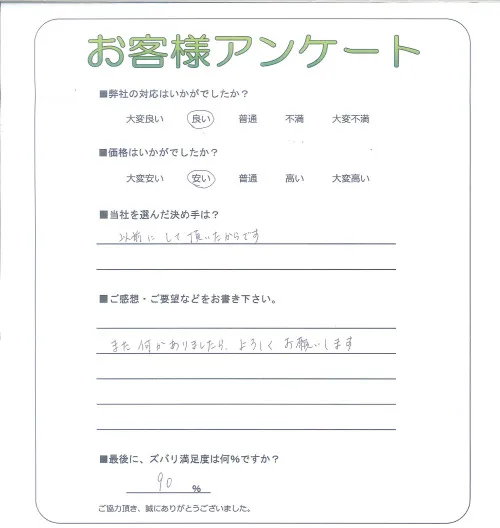 お客様アンケート
■弊社の対応はいかがでしたか？
大変良い 良い 普通 不満 大変不満
■価格はいかがでしたか？
大変安い 安い 普通 高い 大変高い
■当社を選んだ決め手は？
以前にして頂いたからです
■ご感想・ご要望などをお書き下さい。
また何かありましたら、よろしくお願いします
■最後に、ズバリ満足度は何%ですか？
90 %
ご協力頂き、誠にありがとうございました。